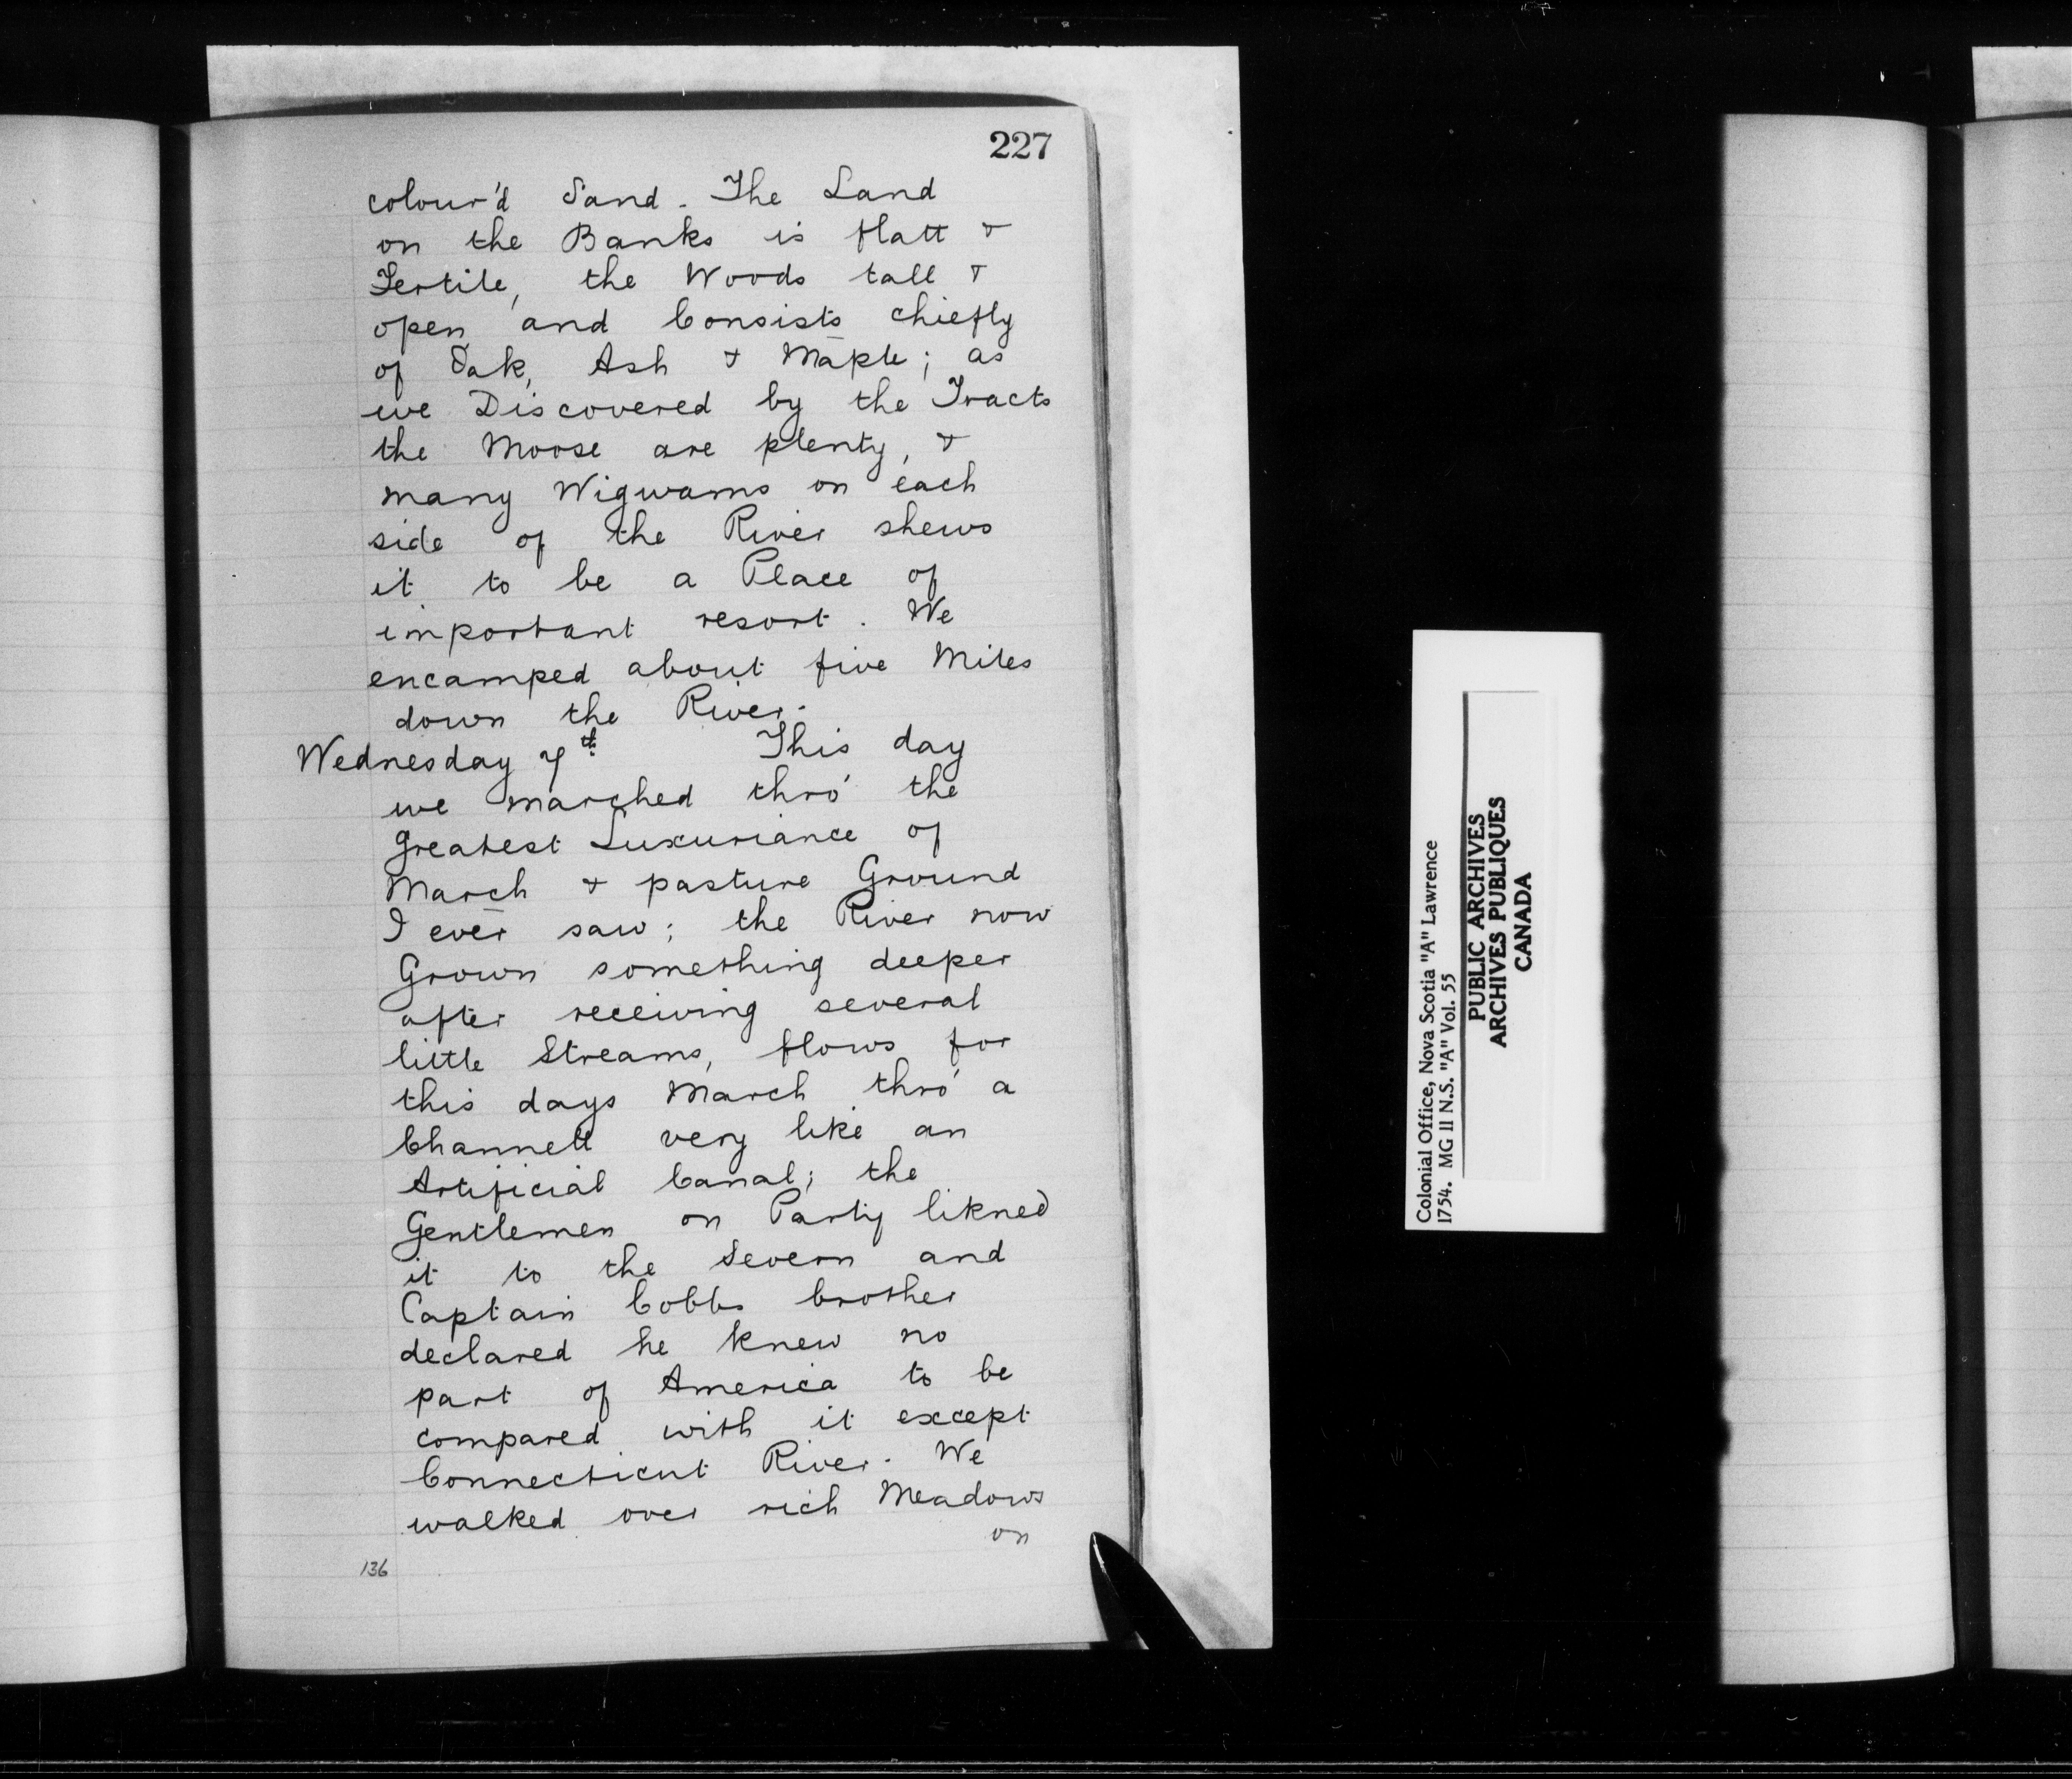 227
colour'd Sand. The Land
on the Banks is flatt &
Fertile, the Woods tall &
open and Consists chiefly
of Oak, Ash & Maple; as
we Discovered by the Tracts
the Moose are plenty, &
many Wigwams on each
side of the River shews
it to be a Place of
important resort. We
encamped about five Miles
down the River.
Wednesday 7th. This day
we marched thro' the
greatest Luxuriance of
March & pasture Ground
I ever saw; the River now
Grown something deeper
after receiving several
little Streams, flows for
this days March thro' a
Channell very like an
Artificial Canal; the
Gentlemen on Party likned
it to the Severn and
Captain Cobbs brother
declared he knew no
part of America to be
compared with it except
Connecticut River. We
walked over rich Meadows
on
136
Colonial Office, Nova Scotia "A" Lawrence
1754. MG II N.S. "A" Vol. 55
PUBLIC ARCHIVES
ARCHIVES PUBLIQUES
CANADA